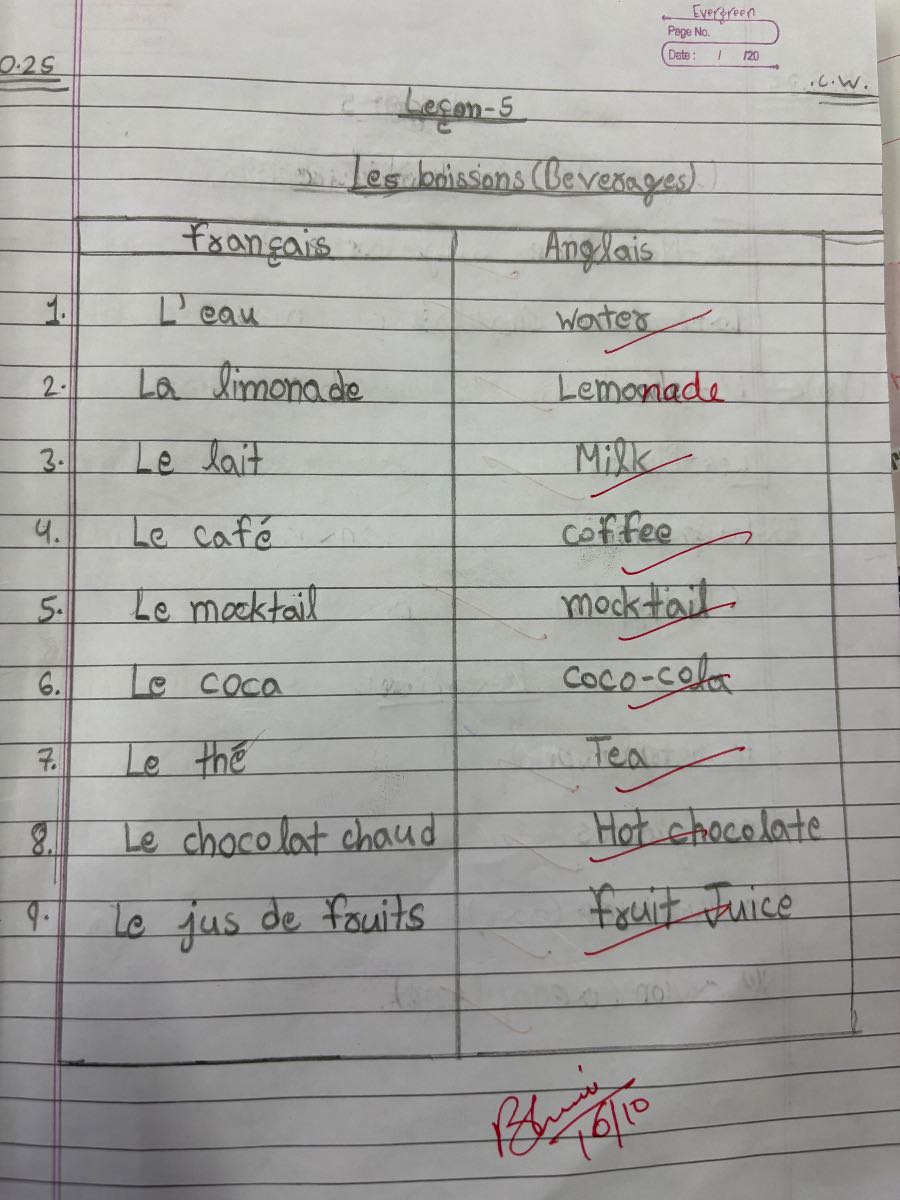 Evergreen
Page No.
Date : / /20
0.25
.C.W.
Leçon-5
Les boissons (Beverages)
français Anglais
1. L'eau water
2. La limonade Lemonade
3. Le lait Milk
4. Le café coffee
5. Le mocktail mocktail
6. Le coca coco-cola
7. Le thé Tea
8. Le chocolat chaud Hot chocolate
9. Le jus de fruits fruit Juice
16/10